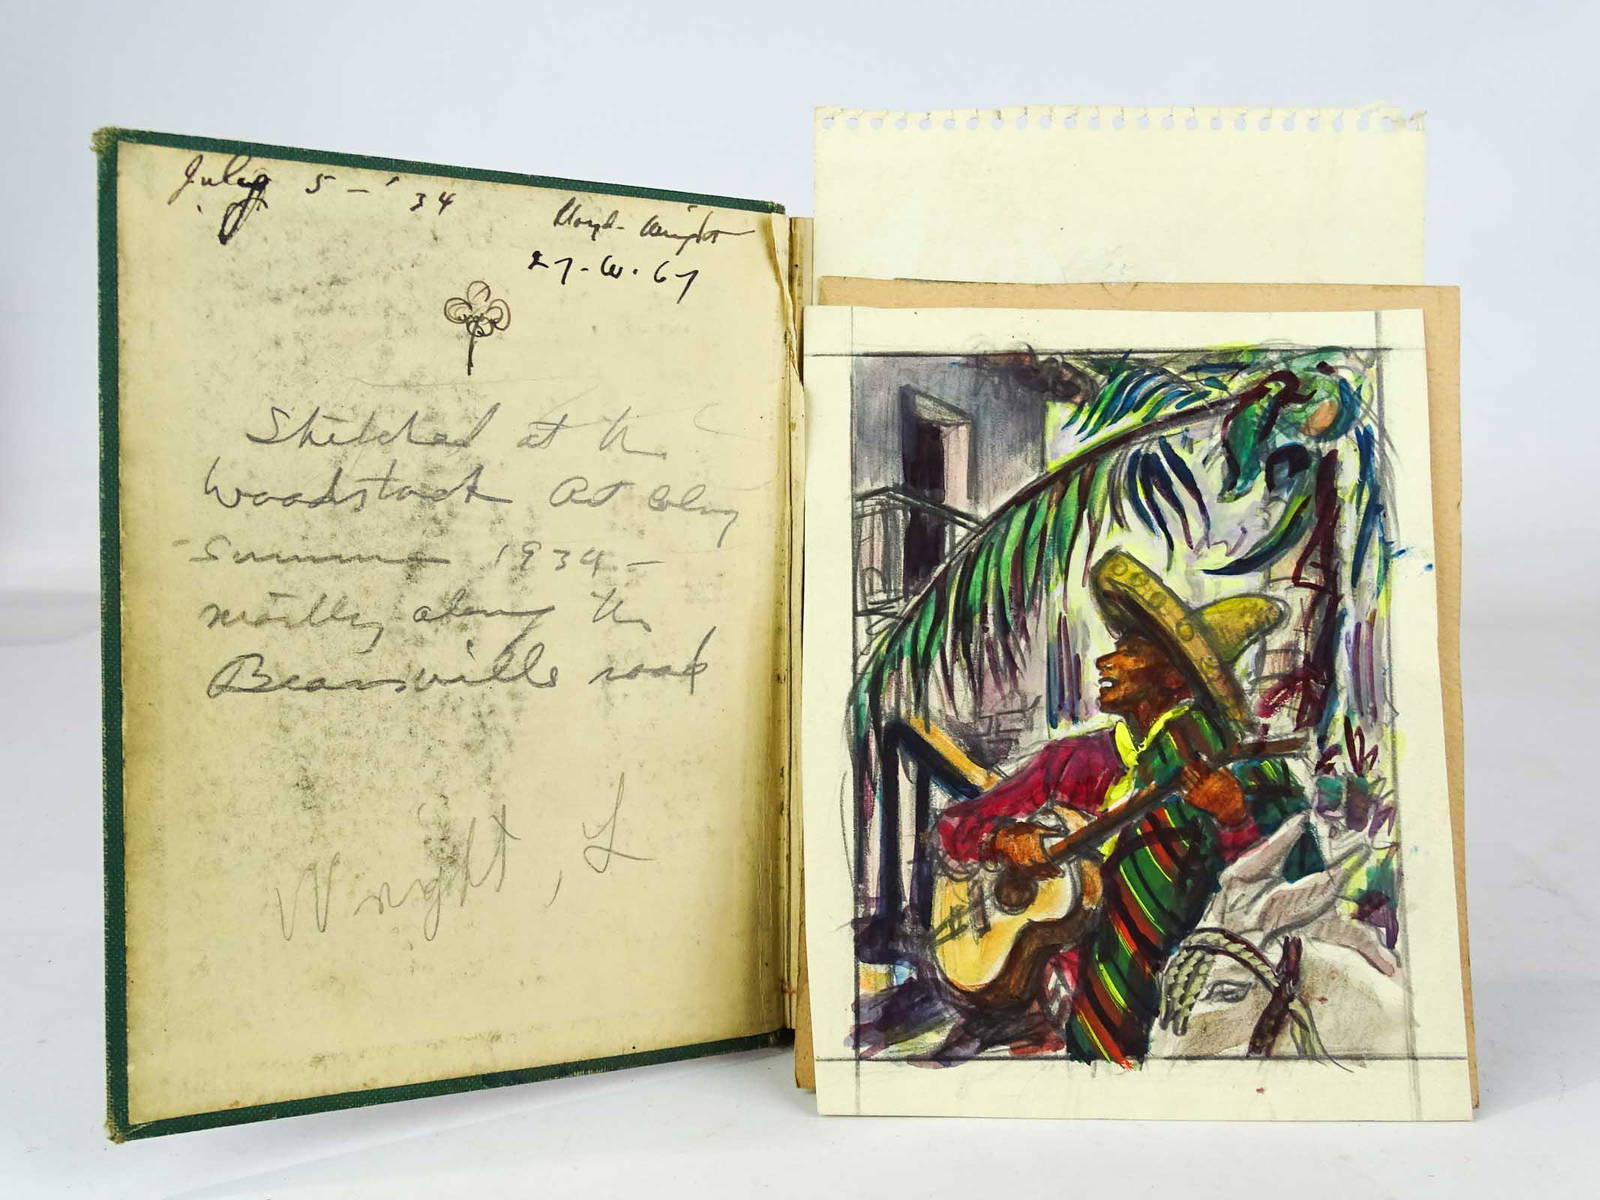 July 5 - '34
Lloyd Wright
27-W-67
Sketched at the
Woodstock Art Colony
Summer 1934 -
mostly along the
Bearsville road
Wright, L